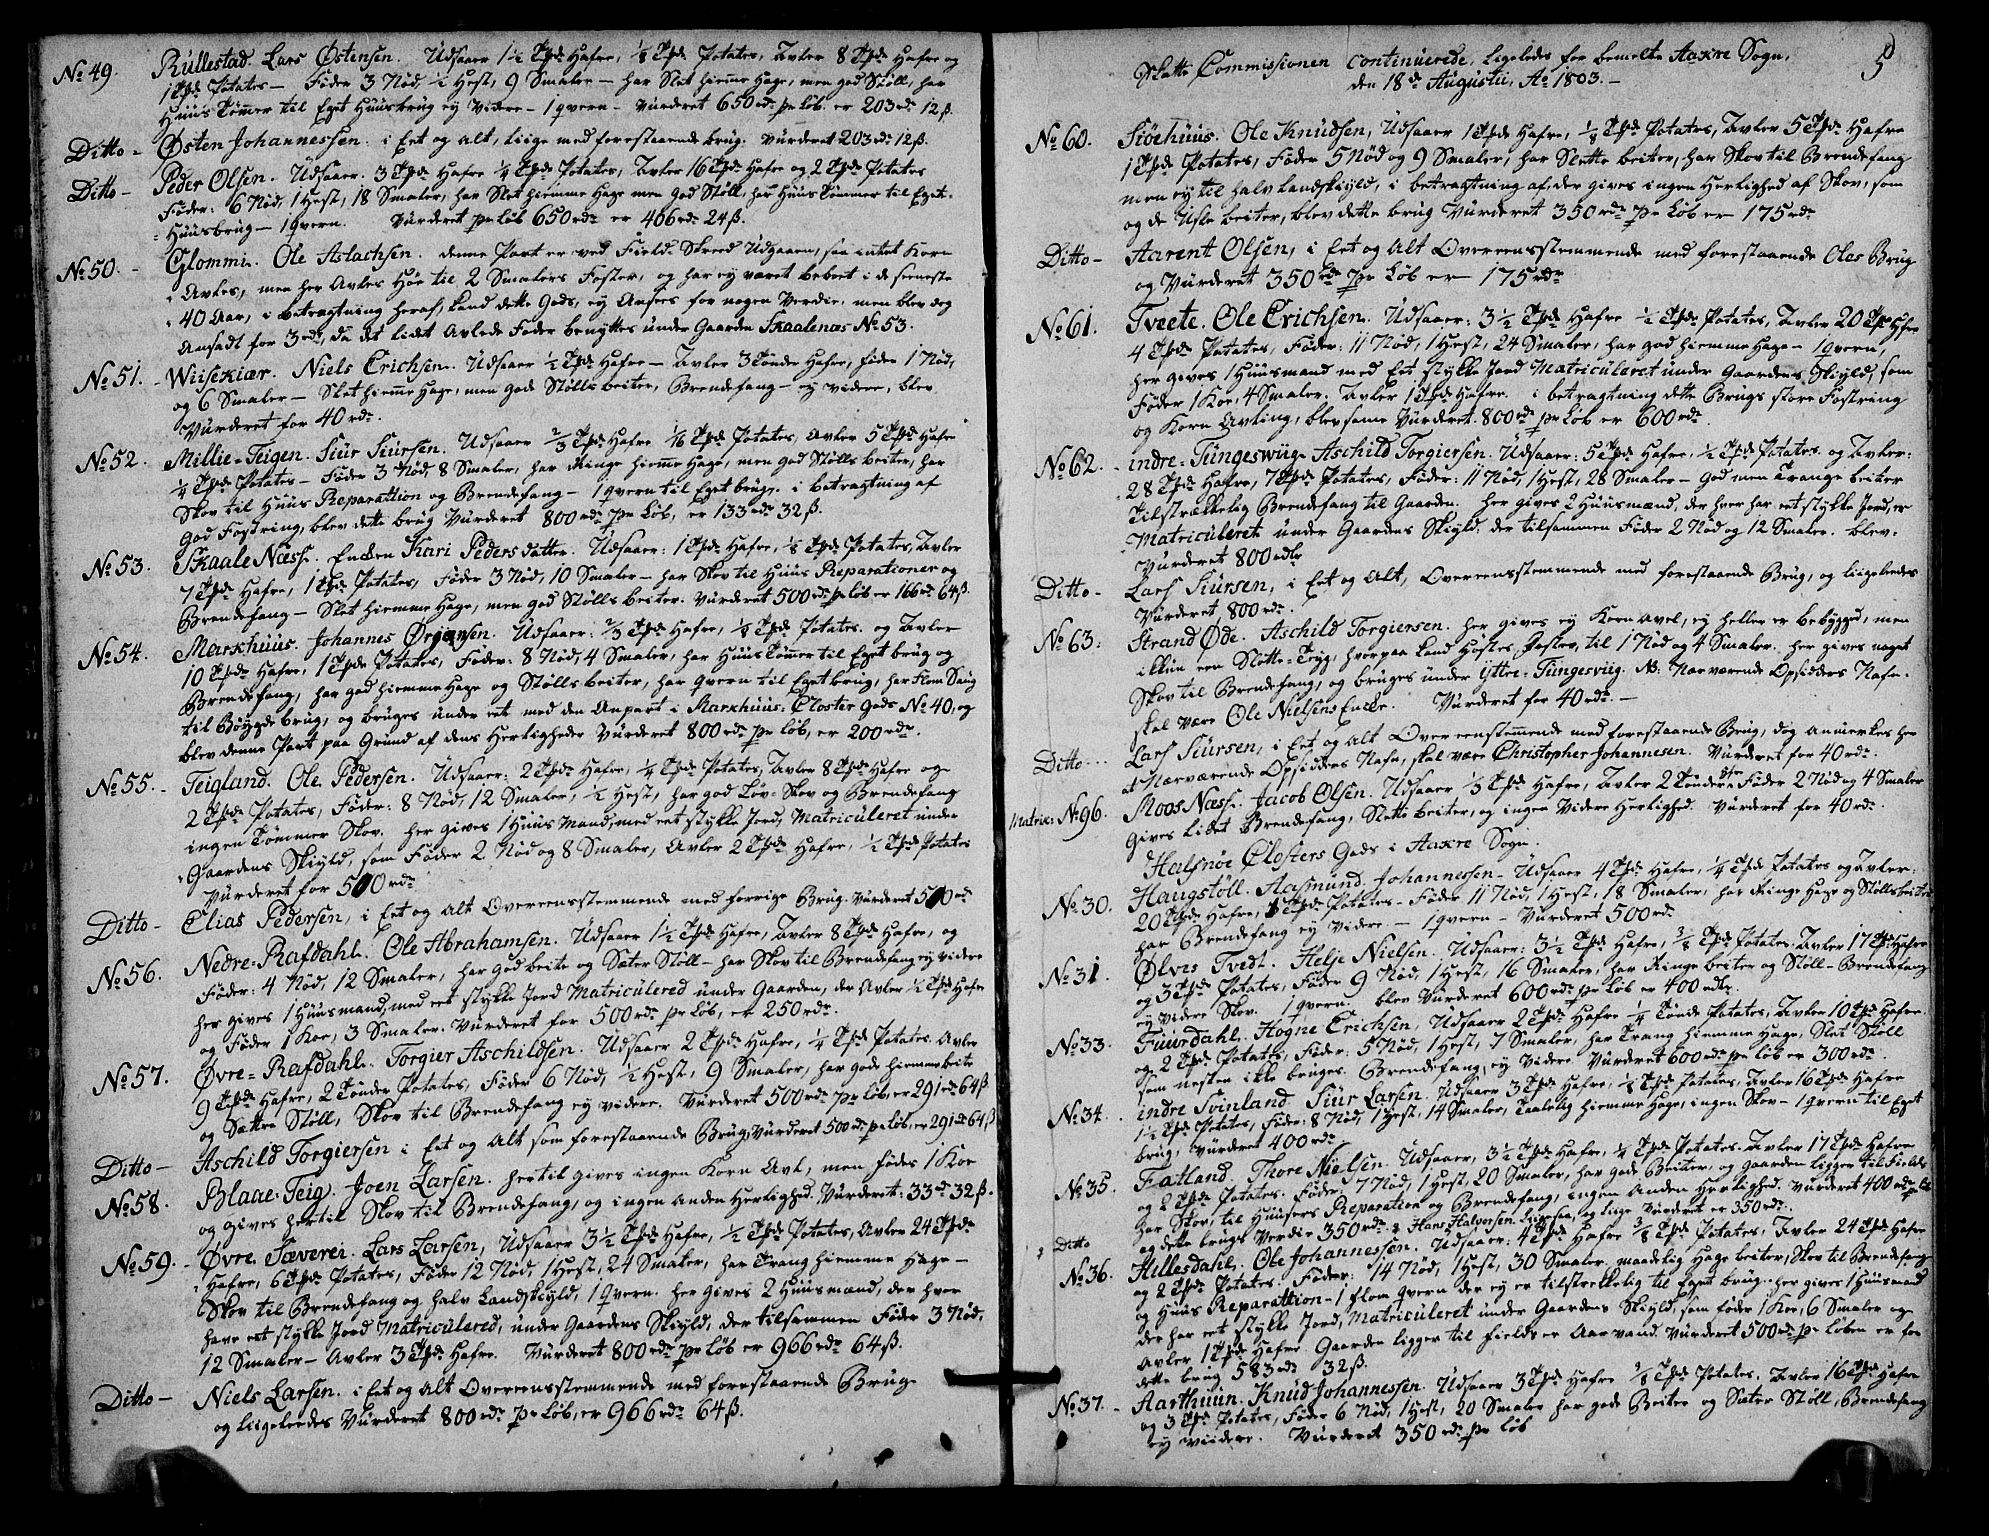 No 49. Rullestad. Lars Østensen. Udsaaer 1½ Tønde Hafre, ⅛ Tønde Potates, Avler 8 Tønder Hafre og
1 Tønde Potates — Føder 3 Nød, ½ Hest, 9 Smaler — har Slet hiemme Hage, men god Støll, har
Huus Tømmer til Eget Huusbrug ey videre — 1 qvern — Vurderet 650 rdr pr Løb er 203 rdr 12 ß.
Ditto — Østen Johannessen. i Eet og alt, liige med forestaaende brug. Vurderet 203 rdr 12 ß.
Ditto — Peder Olsen. Udsaaer 3 Tønder Hafre ¼ Tønde Potates, Avler 16 Tønder Hafre og 2 Tønder Potates
Føder: 6 Nød, 1 Hest, 18 Smaler, har Slet hiemme Hage men god Støll, har Huus Tømmer til Eget
Huusbrug — 1 qvern. Vurderet pr Løb 650 rdr er 406 rdr 24 ß.
No 50. - Glommi. Ole Aslachsen. denne Part er ved Field Skreed Udgaaen, saa intet Korn
Avles, men her Avles Høe til 2 Smalers Foster, og har ey været beboet i de seeneste
40 Aar, i betragtning heraf, kand dette Gods, ey Ansees for nogen Verdie. men blev dog
Ansadt for 3 rdr, da det lidet Avlede Foder benyttes under Gaarden Skaalenæs No 53.
No 51. - Wiisekiær. Niels Erichsen. Udsaaer ½ Tønde Hafre — Avler 3 Tønder Hafre, føder 1 Nød,
og 6 Smaler — Slet hiemme Hage, men gode Støllsbeiter, Brendefang — ey videre, blev
Vurderet for 40 rdr.
No 52. Millie-Teigen. Siur Siursen. Udsaaer ⅔ Tønde Hafre 1/16 Tønde Potates, Avler 5 Tønder Hafre
¼ Tønde Potates — Føder 3 Nød, 8 Smaler, har Ringe hiemme Hage, men god Støllsbeiter, har
Skov til Huus Reparattion og Brendefang — 1 qvern til Eget brug. i betragtning af
god Fostring, blev dette brug Vurderet 800 rdr pr Løb, er 133 rdr 32 ß.
No 53. Skaale Næss. Encken Kari Pedersdatter. Udsaaer: 1 Tønde Hafre, ⅛ Tønde Potates, Avler
7 Tønder Hafre, 1 Tønde Potates, Føder 3 Nød, 10 Smaler — har Skov til Huus Reparationer og
Brendefang — Slet hiemme Hage, men god Støllsbeiter. Vurderet 500 rdr pr Løb er 166 rdr 64 ß.
No 54. Markhuus. Johannes Ørjansen. Udsaaer: ⅔ Tønde Hafre, ⅛ Tønde Potates, og Avler
10 Tønder Hafre, 1 Tønde Potates, Føder: 8 Nød, 4 Smaler, har Huus Tømmer til Eget brug og
Brendefang, har god hiemme Hage og Støllsbeiter, har qvern til Eget brug, har Flom Saug
til Bøygde brug, og bruges under eet med den Anpart i Markhuus: Closter Gods No 40, og
blev denne Part paa Grund af dens Herligheder Vurderet 800 rdr pr Løb, er 200 rdr.
No 55. - Teigland. Ole Pedersen. Udsaaer: 2 Tønder Hafre, ¼ Tønde Potates, Avler 8 Tønder Hafre og
2 Tønder Potates, Føder: 8 Nød, 12 Smaler, ½ Hest, har god Løv-Skov og Brendefang
ingen Tømmer Skov. her gives 1 Huus Mand, med eet stykke Jord, Matriculeret under
Gaardens Skyld, som Føder 2 Nød og 8 Smaler, Avler 2 Tønder Hafre, ½ Tønde Potates
Vurderet for 500 rdr
Ditto — Elias Pedersen, i Eet og Alt Overeensstemmende med forrige Brug. Vurderet 500 rdr
No 56. Nedre-Rafdahl. Ole Abrahamsen. Udsaaer 1½ Tønde Hafre, Avler 8 Tønder Hafre, og
Føder: 4 Nød, 12 Smaler, har god beite og Sæter Støll — har Skov til Brendefang ey videre
her gives 1 Huusmand, med eet stykke Jord Matriculered under Gaarden, der Avler ½ Tønde Hafre
og Føder 1 Koe, 3 Smaler. Vurderet for 500 rdr pr Løb, er 250 rdr.
No 57. Øvre-Rafdahl. Torgier Aschildsen. Udsaaer 2 Tønder Hafre, ¼ Tønde Potates. Avler
9 Tønder Hafre, 2 Tønder Potates, Føder 6 Nød, ½ Hest, 9 Smaler, har gode hiemme beite
og Sættre Støll, Skov til Brendefang ey videre. Vurderet 500 rdr pr Løb, er 291 rdr 64 ß
Ditto — Aschild Torgiersen i Eet og Alt som forestaaende Brug, Vurderet 500 rdr pr Løb, er 291 rdr 64 ß
No 58. Blaae-Teig. Joen Larsen. hertil gives ingen Korn Avl, men fødes 1 Koe
og gives hertil Skov til Brendefang, og ingen anden Herlighed. Vurderet: 33 rdr 32 ß.
No 59. - Øvre Tæverei. Lars Larsen, Udsaaer 3½ Tønde Hafre, ½ Tønde Potates, Avler 24 Tønder
Hafre, 6 Tønder Potates, Føder 12 Nød, 1 Hest, 24 Smaler, har Trang hiemme Hage —
Skov til Brendefang og halv Landskyld, 1 qvern. her gives 2 Huusmænd, der hver
have eet stykke Jord Matriculered, under Gaardens Skyld, der tilsammen Føder 3 Nød,
12 Smaler — Avler 3 Tønder Hafre. Vurderet 800 rdr pr Løb er 966 rdr 64 ß.
Ditto — Niels Larsen. i Eet og Alt Overeensstemmende med forestaaende Brug
og liigeleedes Vurderet 800 rdr pr Løb, er 966 rdr 64 ß.
5
Skatte Commissionen continuerede, Ligeledes for bemelte Aakre Sogn,
den 18de Augustii, Ao 1803. —
No 60. Siøehuus. Ole Knudsen, Udsaaer 1 Tønde Hafre, ⅛ Tønde Potates, Avler 5 Tønder Hafre
1 Tønde Potates, Føder 5 Nød og 9 Smaler, har Slette beiter, har Skov til Brendefang
men ey til halv Landskyld, i betragtning af, der gives ingen Herlighed af Skov, som
og de Usle beiter, blev dette brug Vurderet 350 rdr pr Løb er — 175 rdr
Ditto — Aarent Olsen, i Eet og Alt Overeensstemmende med forestaaende Oles Brug
og Vurderet 350 rdr pr Løb er — 175 rdr
No 61. Tveete. Ole Erichsen. Udsaaer: 3½ Tønde Hafre ½ Tønde Potates, Avler 20 Tønder Hafre
4 Tønder Potates, Føder: 11 Nød, 1 Hest, 24 Smaler, har god hiemme Hage — 1 qvern,
her gives 1 Huusmand med Eet stykke Jord Matriculeret under Gaardens Skyld, som
Føder 1 Koe, 4 Smaler. Avler 1 Tønde Hafre. i betragtning dette Brugs store Fostring
og Korn Avling, blev samme Vurderet 800 rdr pr Løb er 600 rdr.
No 62. - indre-Tungesvüg. Aschild Torgiersen. Udsaaer: 5 Tønder Hafre, ½ Tønde Potates og Avler:
28 Tønder Hafre, 7 Tønder Potates, Føder: 11 Nød, 1 Hest, 28 Smaler — God men Trange beiter
Tilstrækkelig Brendefang til Gaarden. her gives 2 Huusmænd, der hver har eet stykke Jord, er
Matriculeret under Gaardens Skyld: der tilsammen Føder 2 Nød og 12 Smaler. blev.
Vurderet 800 rdlr
Ditto — Lars Siursen, i Eet og Alt, Overeensstemmende med forestaaende Brug, og liigeleedes
Vurderet 800 rdr.
No 63: Strand Øde. Aschild Torgiersen. her gives ey Korn Avel, ey heller er bebygged, men
ikkun een Slotte-Teyg, hvorpaa kand Høstes Foster, til 1 Nød og 4 Smaler. her gives noget
Skov til Brendefang, og bruges under Yttre-Tungesvüg. NB: Nærværende Opsidders Nafn.
skal være Ole Nielsens Encke. Vurderet for 40 rdr. —
Ditto... Lars Siursen, i Eet og Alt Overeenstemmende med forestaaende Brug, dog anmerkes her
at Nærværende Opsidders Nafn, skal være Christopher Johannesen. Vurderet for 40 rdr.
Matric: No 96. Moos Næss. Jacob Olsen. Udsaaer ⅓ Tønde Hafre, Avler 2 Tønder Hfr Føder 2 Nød og 4 Smaler
gives lidet Brendefang, Slette beiter, og ingen Videre Herlighed. Vurderet for 40 rdr.
Halsnøe Closters Gods i Aakre Sogn.
No 30. Haugstöll. Aasmund Johannessen — Udsaaer 4 Tønder Hafre, ¼ Tønde Potates og Avler:
20 Tønder Hafre, Tønder Potates — Føder 11 Nød, 1 Hest, 18 Smaler, har Ringe Hage og Støllsbeiter
har Brendefang ey videre — 1 qvern — Vurderet 500 rdr
No 31 Ølves Tvedt. Helje Nielsen. Udsaaer: 3½ Tønde Hafre, ⅜ Tønde Potates. Avler 17 Tønder Hafre
og 3 Tønder Potates, Føder 9 Nød, 1 Hest, 16 Smaler, har Ringe beiter og Støll — Brendefang
ey videre Skov. 1 qvern. blev Vurderet 600 rdr pr Løb er 400 rdlr.
No 33. Fuurdahl. Hogne Erichsen, Udsaaer 2 Tønder Hafre ¼ Tønde Potates, Avler 10 Tønder Hafre
og 2 Tønder Potates, Føder: 5 Nød, 1 Hest, 7 Smaler, har Trang hiemme Hage, Slat Støll
som nesten ikke bruges. Brendefang, ey Videre Vurderet 600 rdr pr Løb er 300 rdr.
No 34. indre Svinland. Siur Larsen. Udsaaer 3 Tønder Hafre, ⅛ Tønde Potates, Avler 16 Tønder Hafre
1½ Tønde Potates, Føder: 8 Nød, 1 Hest, 14 Smaler, Taalelig hiemme Hage, ingen Skov — 1 qvern til Eget
brug, Vurderet 400 rdr.
No 35. Fatland. Thore Nielsen. Udsaaer, 3½ Tønde Hafre, ¼ Tønde Potates. Avler 17 Tønder Hafre
og 2 Tønder Potates. Føder, 7 Nød, 1 Hest, 20 Smaler, har gode Beiter, og Gaarden ligger til Fields
har Skov, til Huusers Reparation og Brendefang, ingen Anden Herlighed. Vurderet 400 rdr pr Løb
og dette brugs Verdie 350 rdr
Ditto Hans Halvorsen og Liige Vurderet er 350 rdr.
No 36. Hillesdahl. Ole Johannessen. Udsaaer: 4 Tønder Hafre ⅜ Tønde Potates, Avler 24 Tønder Hafre
og 2 Tønder Potates. Føder: 14 Nød, 1 Hest, 30 Smaler, maadelig Hage beiter, Skov til Brendefang
og Huus Reparattion — 1 flom qvern der ey er tilstreckelig til Eget brug. her gives 1 Huusmand
der har eet stykke Jord, Matriculeret under Gaardens Skyld, som føder 1 Koe, 6 Smaler og
Avler 1 Tønde Hafre Gaarden ligger til fields er Aarvand. Vurderet 500 rdr pr Løben er for
dette brug 583 rdr 32 ß.
No 37. - Aarthuun. Knud Johannessen. Udsaaer 3 Tønder Hafre ⅛ Tønde Potates, Avler 16 Tønder Hafre
og 3 Tønder Potates, Føder 6 Nød, 1 Hest, 20 Smaler har gode Beiter og Sæter Støll, Brendefang
ey viidere. Vurderet 350 rdr pr Løb